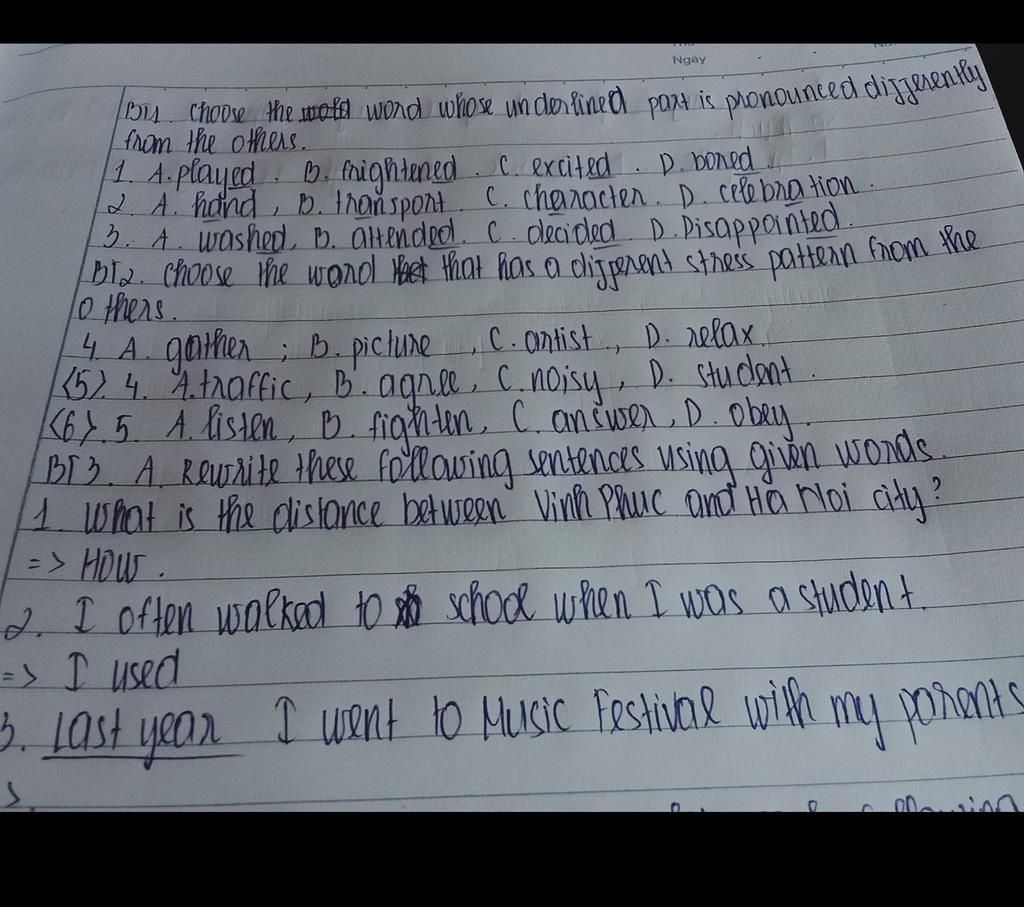 Ngày
BT1. Choose the word whose underlined part is pronounced differently
from the others.
1. A. played. B. frightened. C. excited. D. bored.
2. A. hand, B. transport. C. character. D. celebration.
3. A. washed, B. attended. C. decided. D. Disappointed.
BT2. Choose the word that has a different stress pattern from the
others.
4. A. gather; B. picture, C. artist, D. relax.
<5>. 4. A. traffic, B. agree, C. noisy, D. student.
<6>. 5. A. listen, B. fighten, C. answer, D. obey.
BT3. A. Rewrite these following sentences using given words.
1. What is the distance between Vinh Phuc and Ha Noi city?
=> How.
2. I often walked to school when I was a student.
=> I used
3. Last year I went to Music Festival with my parents